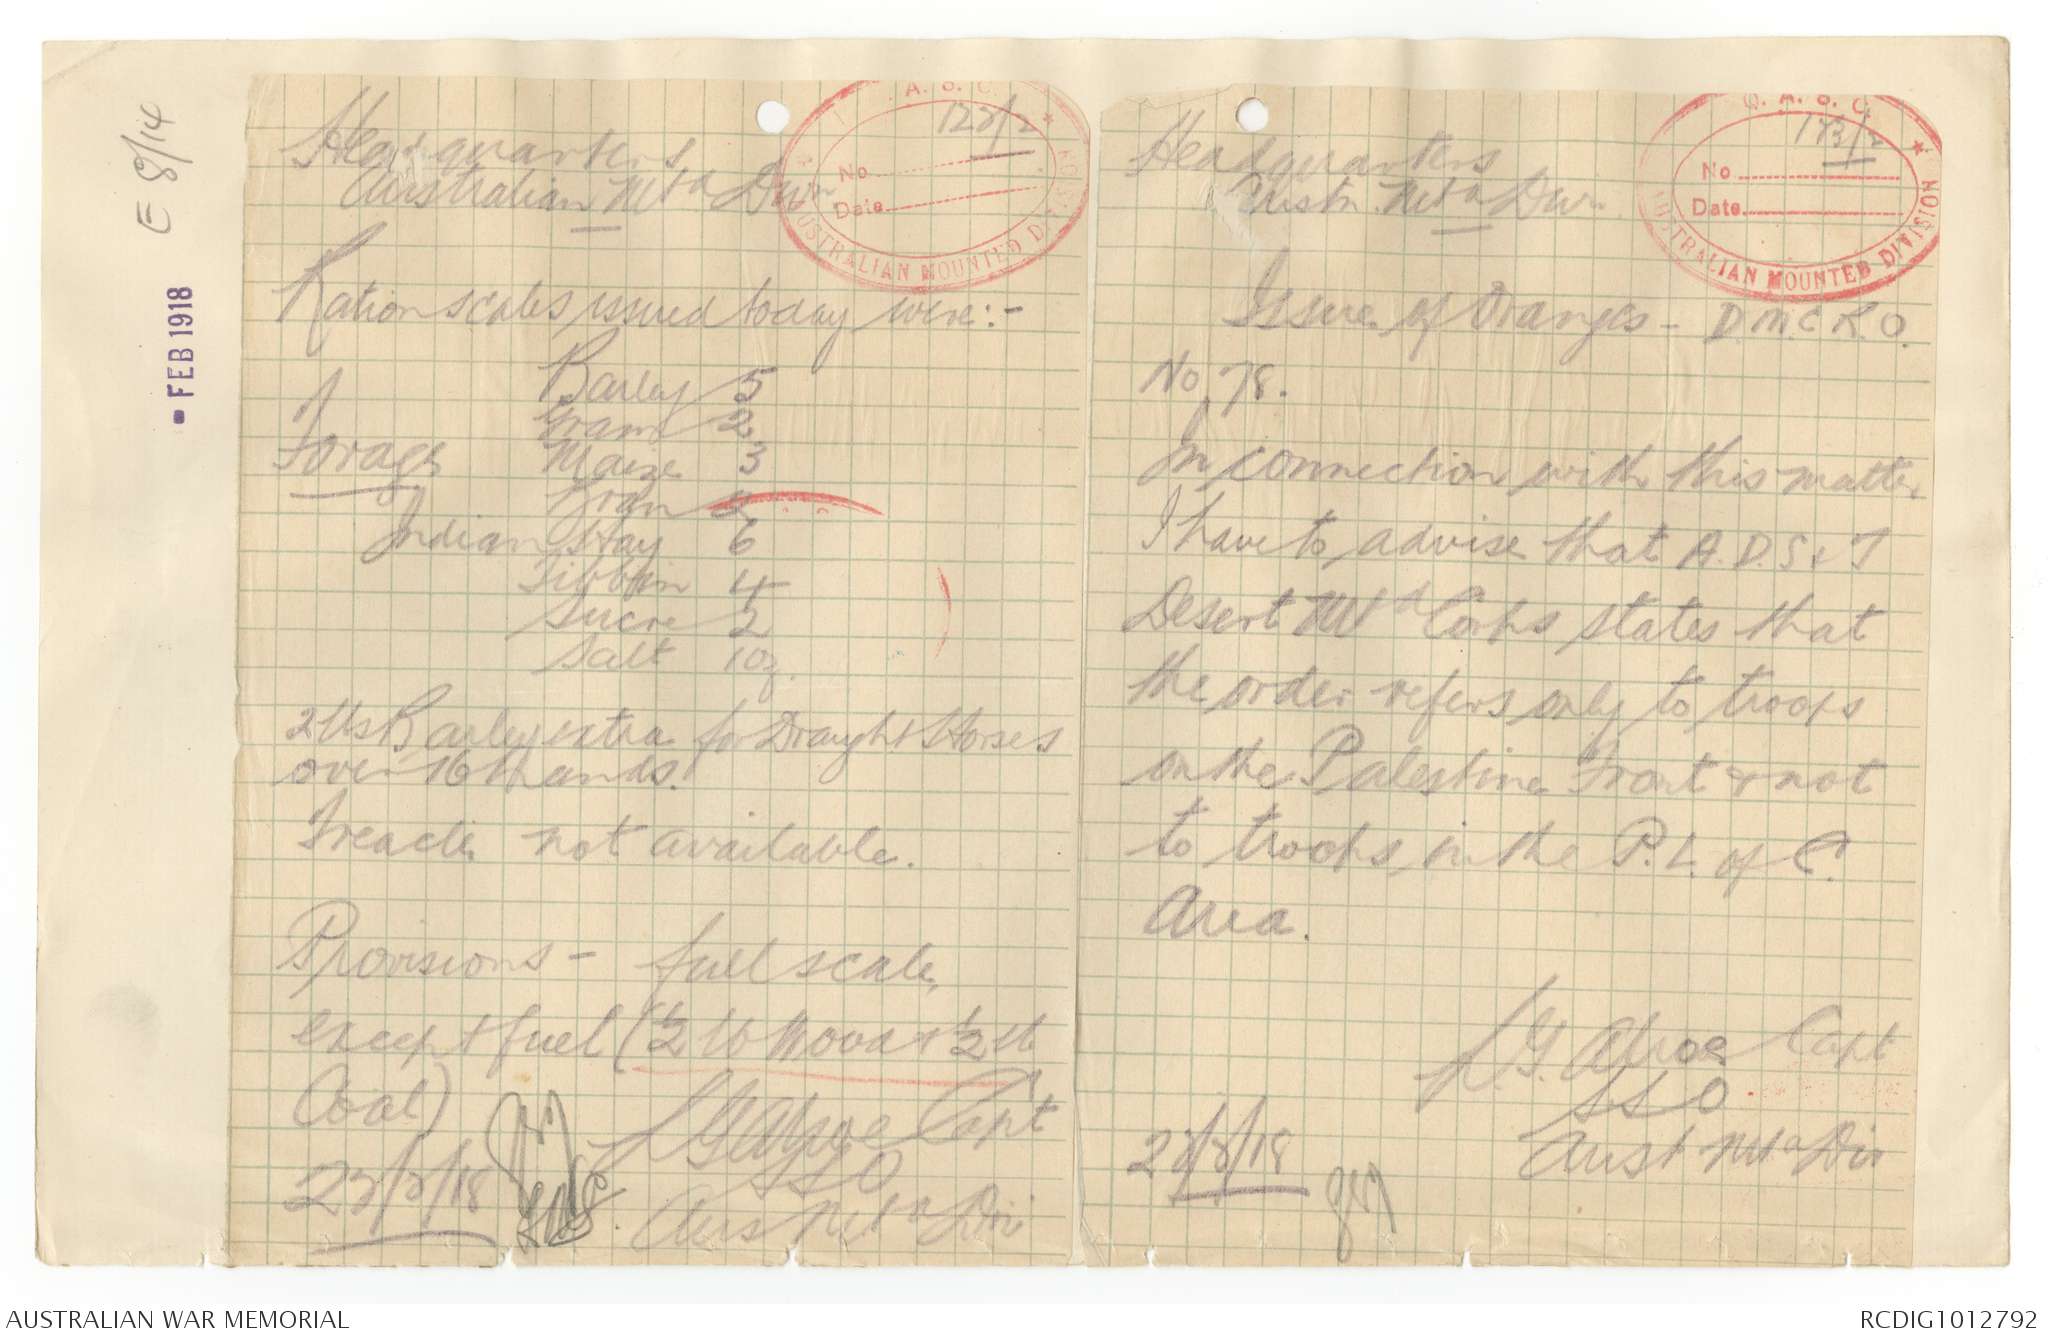 E 8/14
FEB 1918
A. S. C.
122/2
No
Date
AUSTRALIAN MOUNTED DIVISION
Headquarters
Australian Mtd Divn
Ration scales issued today were:-
Forage
Barley 5
Gram 2
Maize 3
Bran
Indian Hay 6
Tibbin 4
Sucre 2
Salt 1 oz.
2 lbs Barley extra for Draught Horses
over 16 hands.
Treacle not available.
Provisions - full scale,
except fuel (½ lb Wood + ½ lb
Coal)
Capt
SSO
Aus Mtd Div
22/2/18
A. S. C.
173/2
No
Date
AUSTRALIAN MOUNTED DIVISION
Headquarters
Austn. Mtd Divn.
Issue of Oranges - D.M.C R.O.
No 78.
In connection with this matter
I have to advise that A.D.S & T
Desert Mtd Corps states that
the order refers only to troops
on the Palestine Front & not
to troops in the P.L. of C.
Area.
Capt
SSO
Aust Mtd Div
22/2/18
AUSTRALIAN WAR MEMORIAL
RCDIG1012792